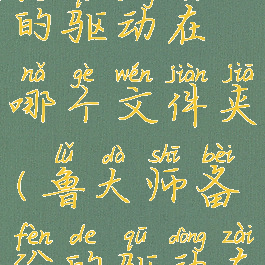 的驱动在
nǎ gè wén jiàn jiā
哪个文件夹
lǔ dà shī bèi
(鲁大师备
fèn de qū dòng zài